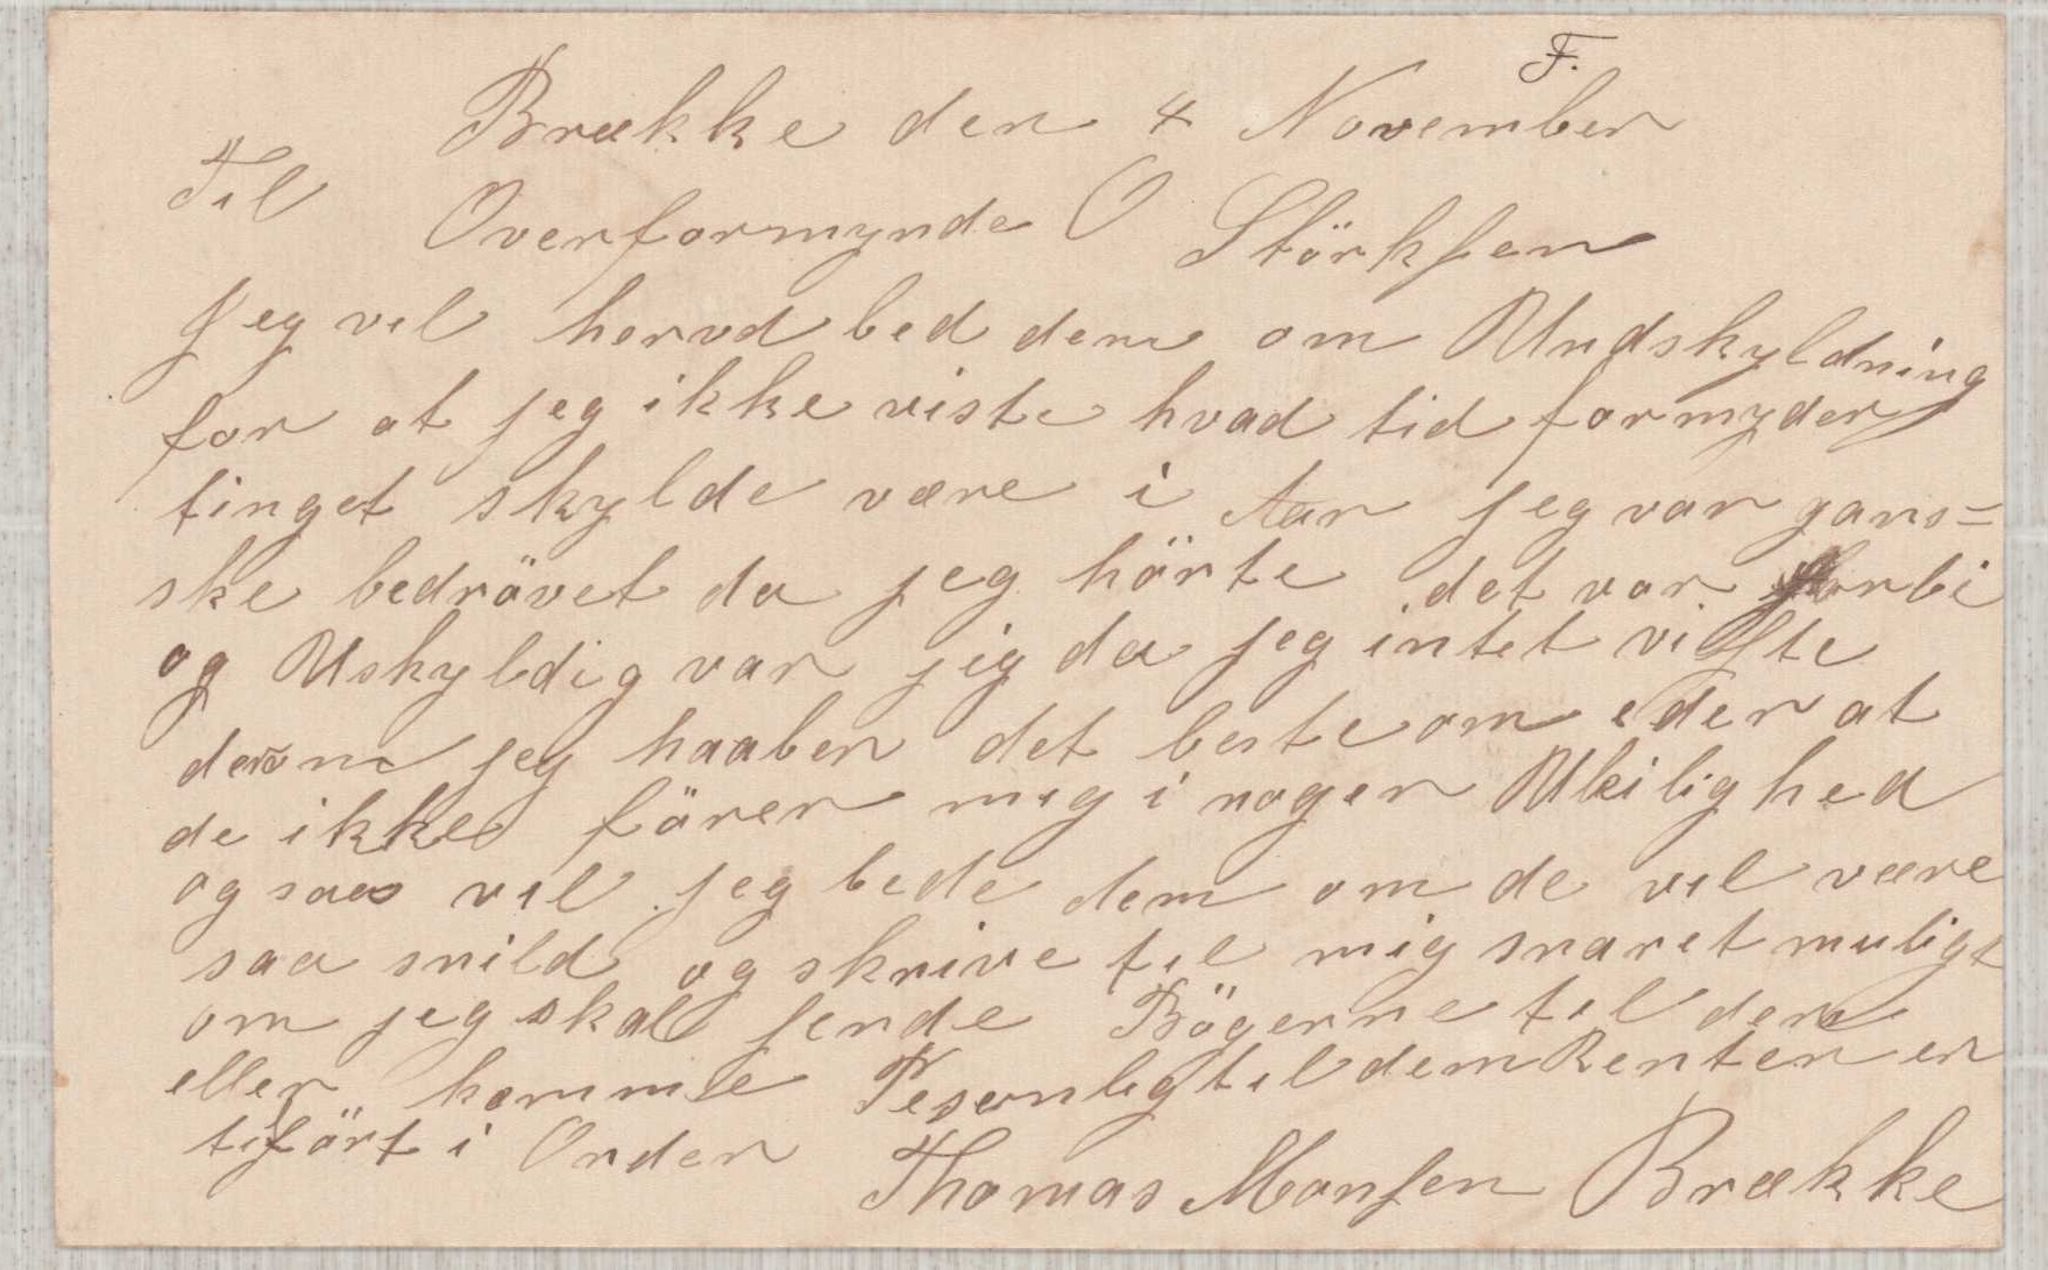 F.
Brække den 4 November
Til Overformynde O Störksen
Jeg vil hervd bed dem om Undskyldning
for at jeg ikke viste hvad tid formyder
tinget skylde være i Aar jeg var gans=
ske bedrövet da jeg hörte det var forbi
og Uskyldig var jeg da jeg intet viste
derom jeg haaber det beste om eder at
de ikke förer mig i nogen Ukilighed
og saa vil jeg bede dem om de vil være
saa snild og skrive til mig snaret muligt
om jeg skal sende Bögerne til dem
eller komme Pesonlig til dem Renten er
tilfört i Orden
Thomas Monsen Brække